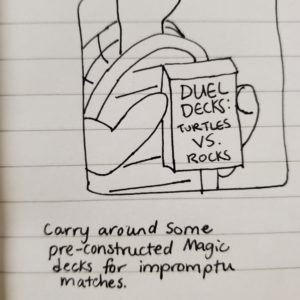 DUEL
DECKS:
TURTLES
VS.
ROCKS
Carry around some
pre-constructed Magic
decks for impromptu
matches.